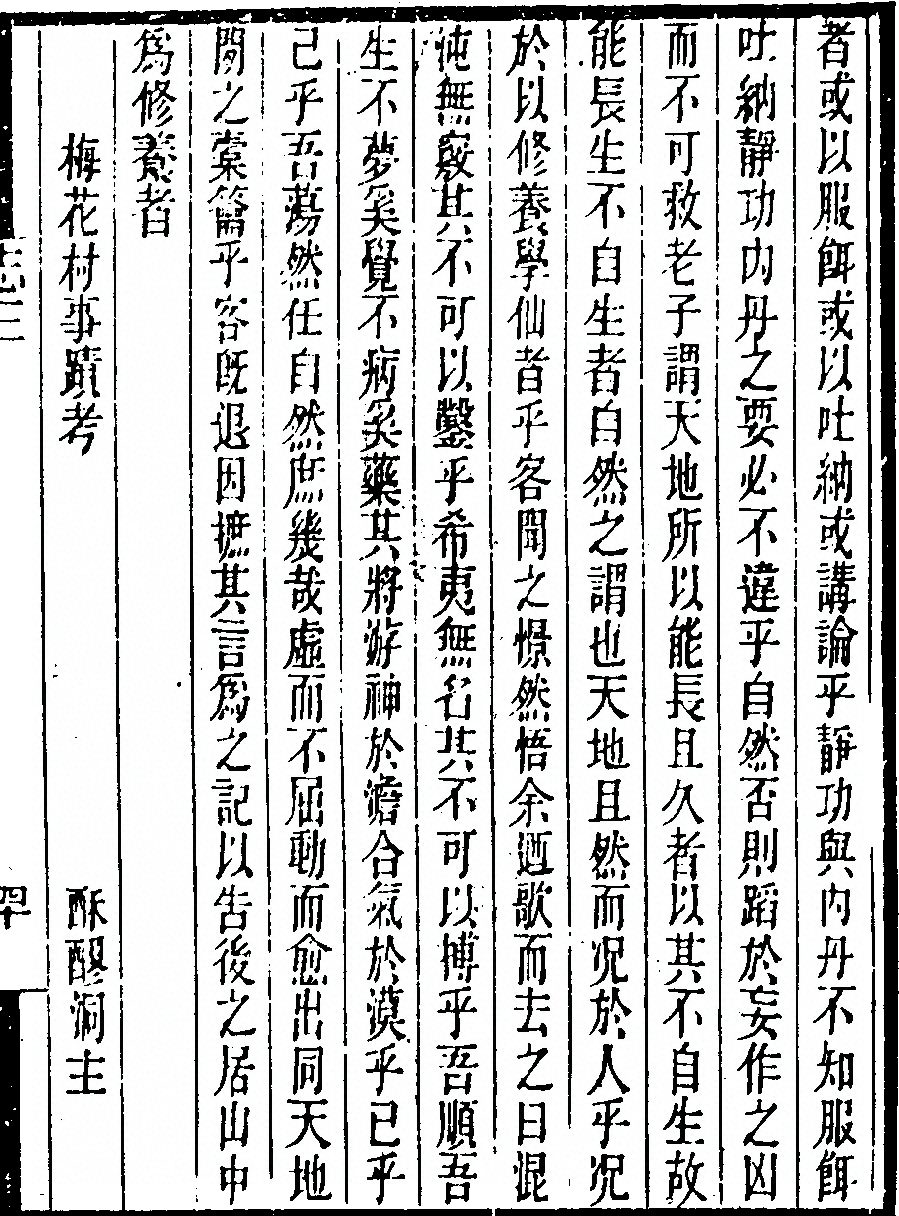 者或以服餌或以吐納或講論乎靜功與内丹不知服餌
吐納靜功内丹之要必不違乎自然否則蹈於妄作之凶
而不可救老子謂天地所以能長且久者以其不自生故
能長生不自生者自然之謂也天地且然而況於人乎況
於以修養學仙者乎客聞之憬然悟余迺歌而去之曰混
沌無竅其不可以鑿乎希夷無名其不可以摶乎吾順吾
生不夢奚覺不病奚藥其將游神於澹合氣於漠乎已乎
己乎吾蕩然任自然庶幾哉虛而不屈動而愈出同天地
間之橐籥乎客既退因摭其言爲之記以告後之居山中
爲修養者
梅花村事蹟考 酥醪洞主
志三
四